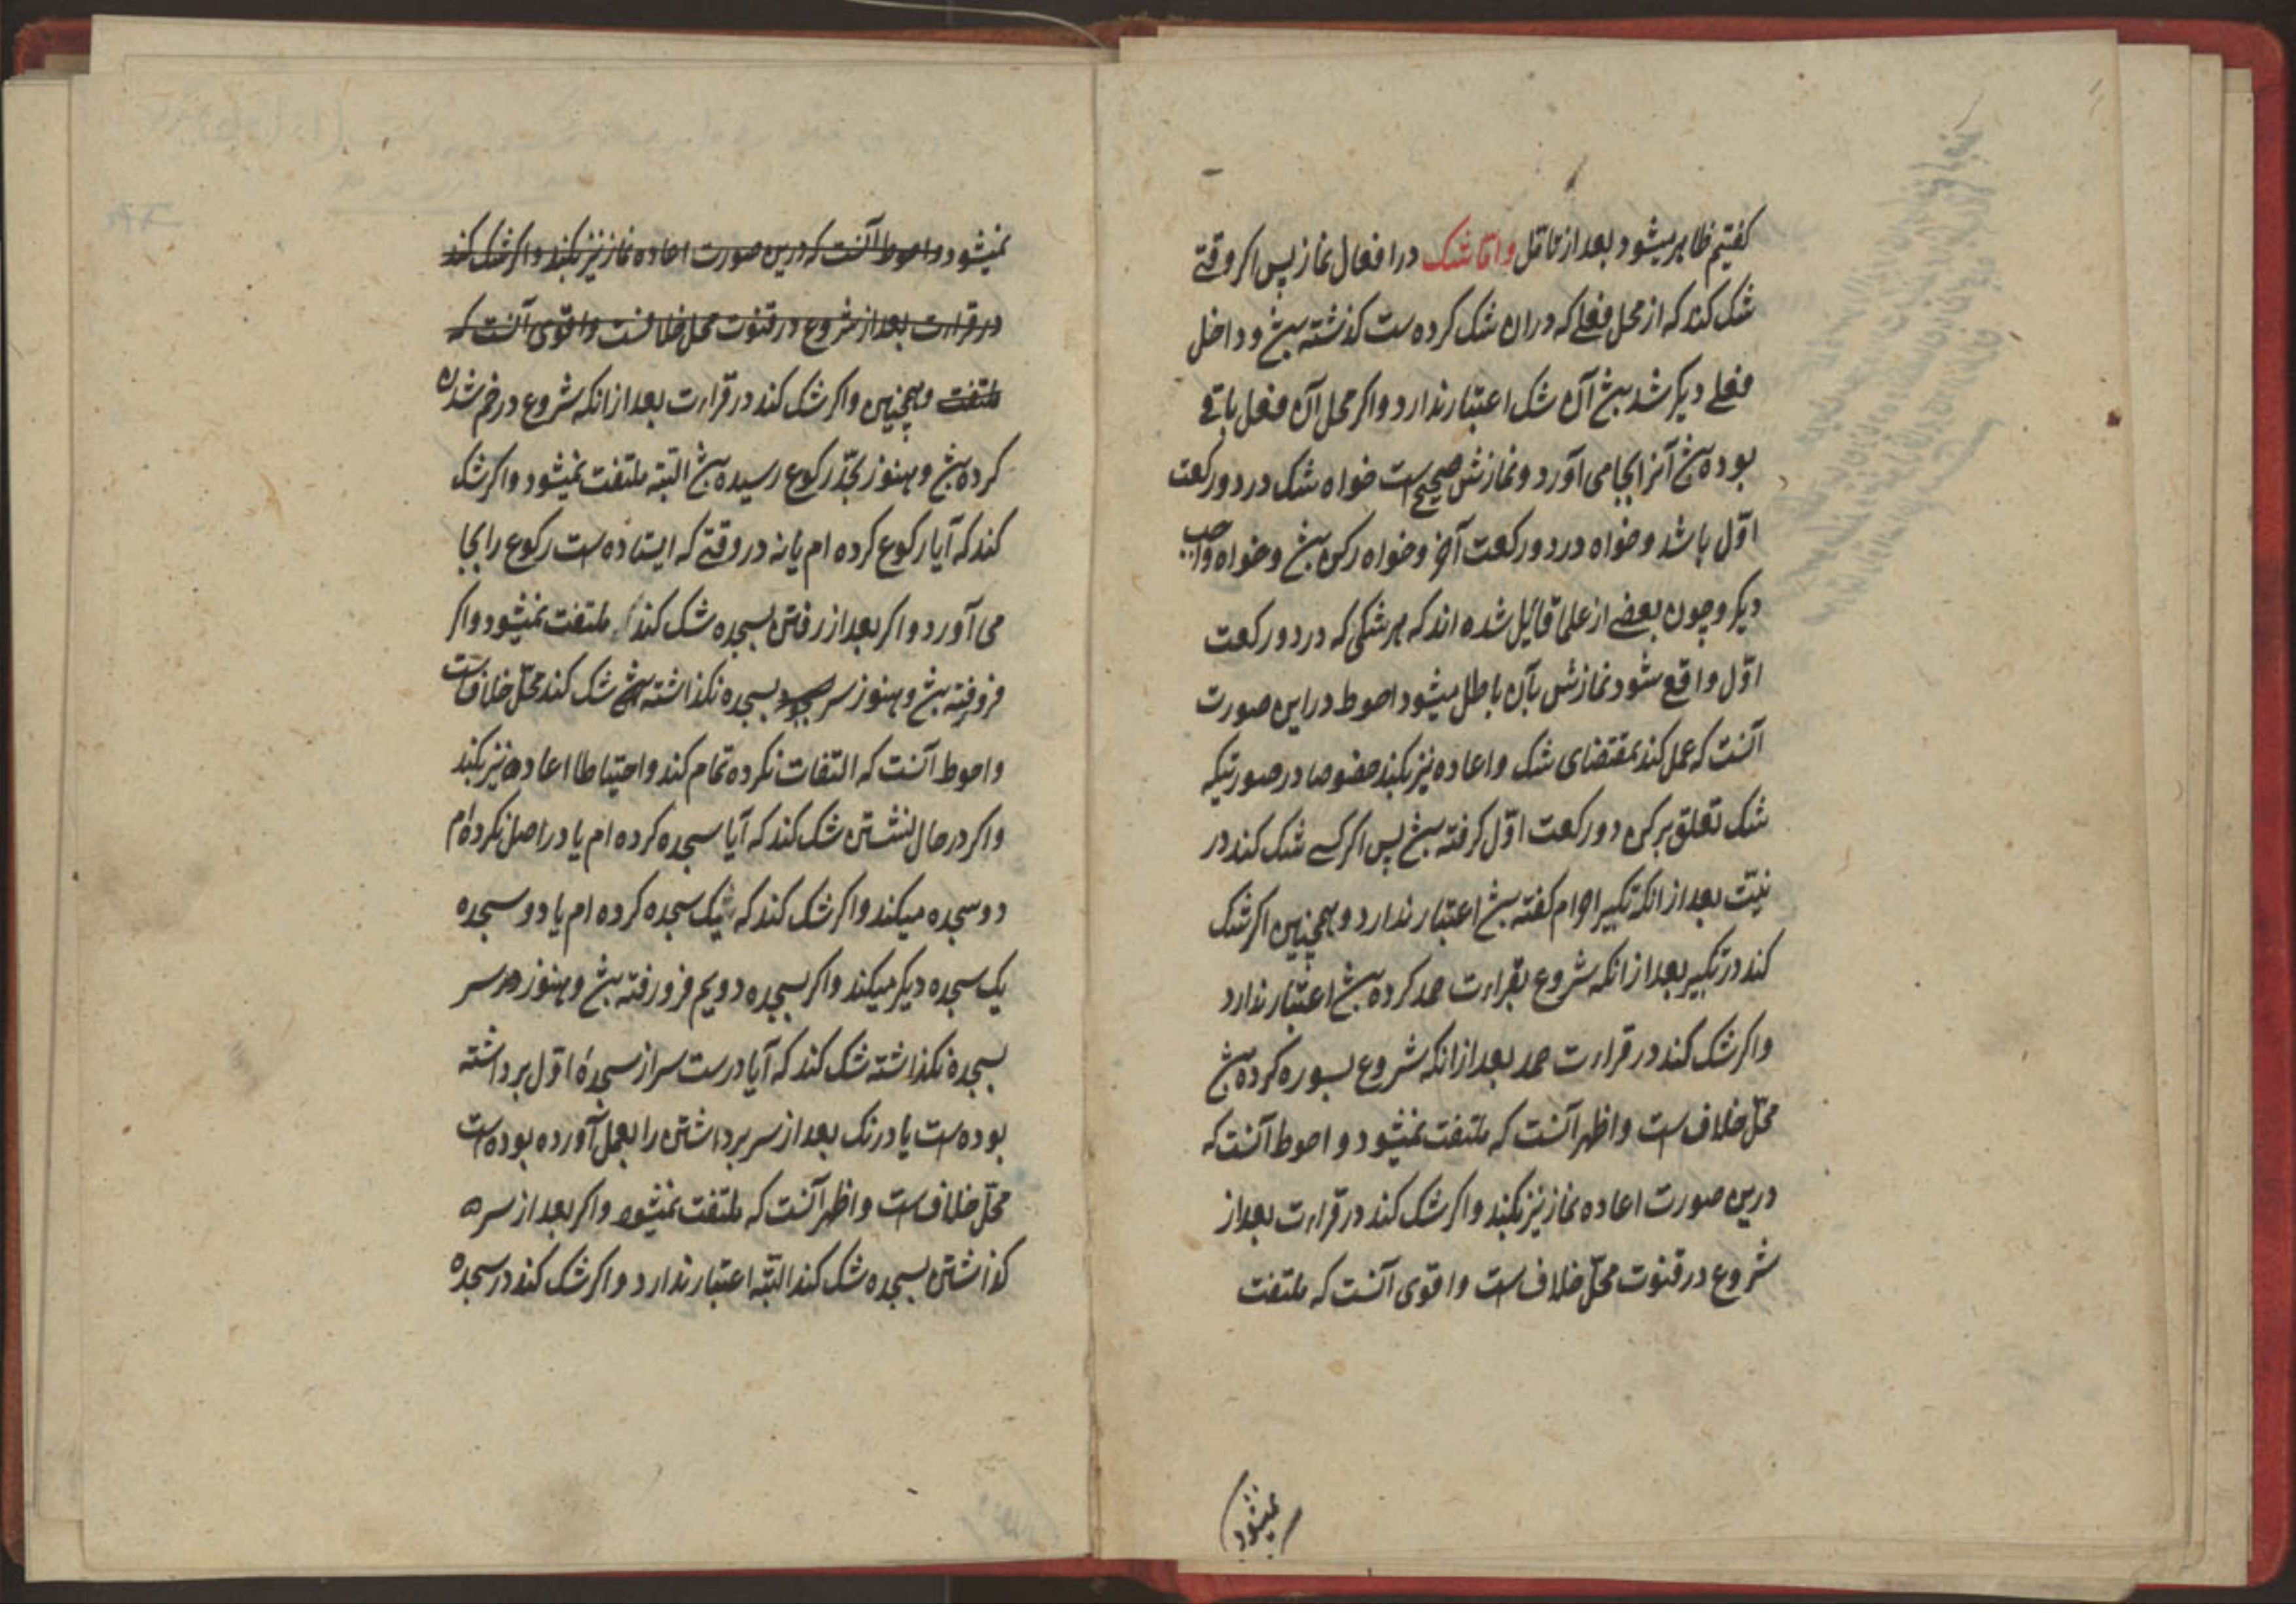 کفتیم ظاهر میشود بعد از تامل واما شک در افعال نماز پس اکر وقتی
شک کند که از محل فعلی که دران شک کرده است کذشته باشد و داخل
فعلی دیکر شده باشد آن شک اعتبار ندارد و اکر محل آن فعل باقی
بوده باشد آنرا بجا می آورد و نمازش صحیح است خواه شک در دو رکعت
اوّل باشد و خواه در دو رکعت آخر و خواه رکن باشد و خواه واجب
دیکر و چون بعضی از علما قائل شده اند که هر شکی که در دو رکعت
اوّل واقع شود نمازش بآن باطل میشود احوط در این صورت
آنست که عمل کند بمقتضای شک و اعاده نیز بکند خصوصا در صورتیکه
شک تعلق برکن دو رکعت اوّل کرفته باشد پس اکر کسی شک کند در
نیّت بعد از انکه تکبیر احرام کفته باشد اعتبار ندارد و همچنین اکر شک
کند در تکبیر بعد از انکه شروع بقراءت حمد کرده باشد اعتبار ندارد
و اکر شک کند در قراءت حمد بعد از انکه شروع بسوره کرده باشد
محلّ خلاف است و اظهر آنست که ملتفت نمیشود و احوط آنست که
درین صورت اعاده نماز نیز بکند و اکر شک کند در قراءت بعد از
شروع در قنوت محلّ خلاف است و اقوی آنست که ملتفت
نمیشود
نمیشود و احوط آنست که درین صورت اعاده نماز نیز بکند و اکر شک کند
در قراءت بعد از شروع در قنوت محل خلافست و اقوی آنست که
ملتفت و همچنین و اکر شک کند در قراءت بعد از انکه شروع در خم شدن
کرده باشد و هنوز بحدّ رکوع رسیده باشد البته ملتفت نمیشود و اکر شک
کند که آیا رکوع کرده ام یا نه در وقتی که ایستاده است رکوع را بجا
می آورد و اکر بعد از رفتن بسجده شک کند ملتفت نمیشود و اکر
فرو رفته باشد و هنوز سر بسجده نکذاشته باشد شک کند محلّ خلاف است
و احوط آنست که التفات نکرده تمام کند و احتیاطا اعاده نیز بکند
و اکر در حال نشستن شک کند که آیا سجده کرده ام یا در اصل نکرده ام
دو سجده میکند و اکر شک کند که یک سجده کرده ام یا دو سجده
یک سجده دیکر میکند و اکر بسجده دویم فرو رفته باشد و هنوز سر
بسجده نکذاشته شک کند که آیا درست سر از سجدهٔ اوّل برداشته
بوده است یا درنک بعد از سر برداشتن را بعمل آورده بوده است
محلّ خلاف است و اظهر آنست که ملتفت نمیشود و اکر بعد از سر
کذاشتن بسجده شک کند البتّه اعتبار ندارد و اکر شک کند در سجده